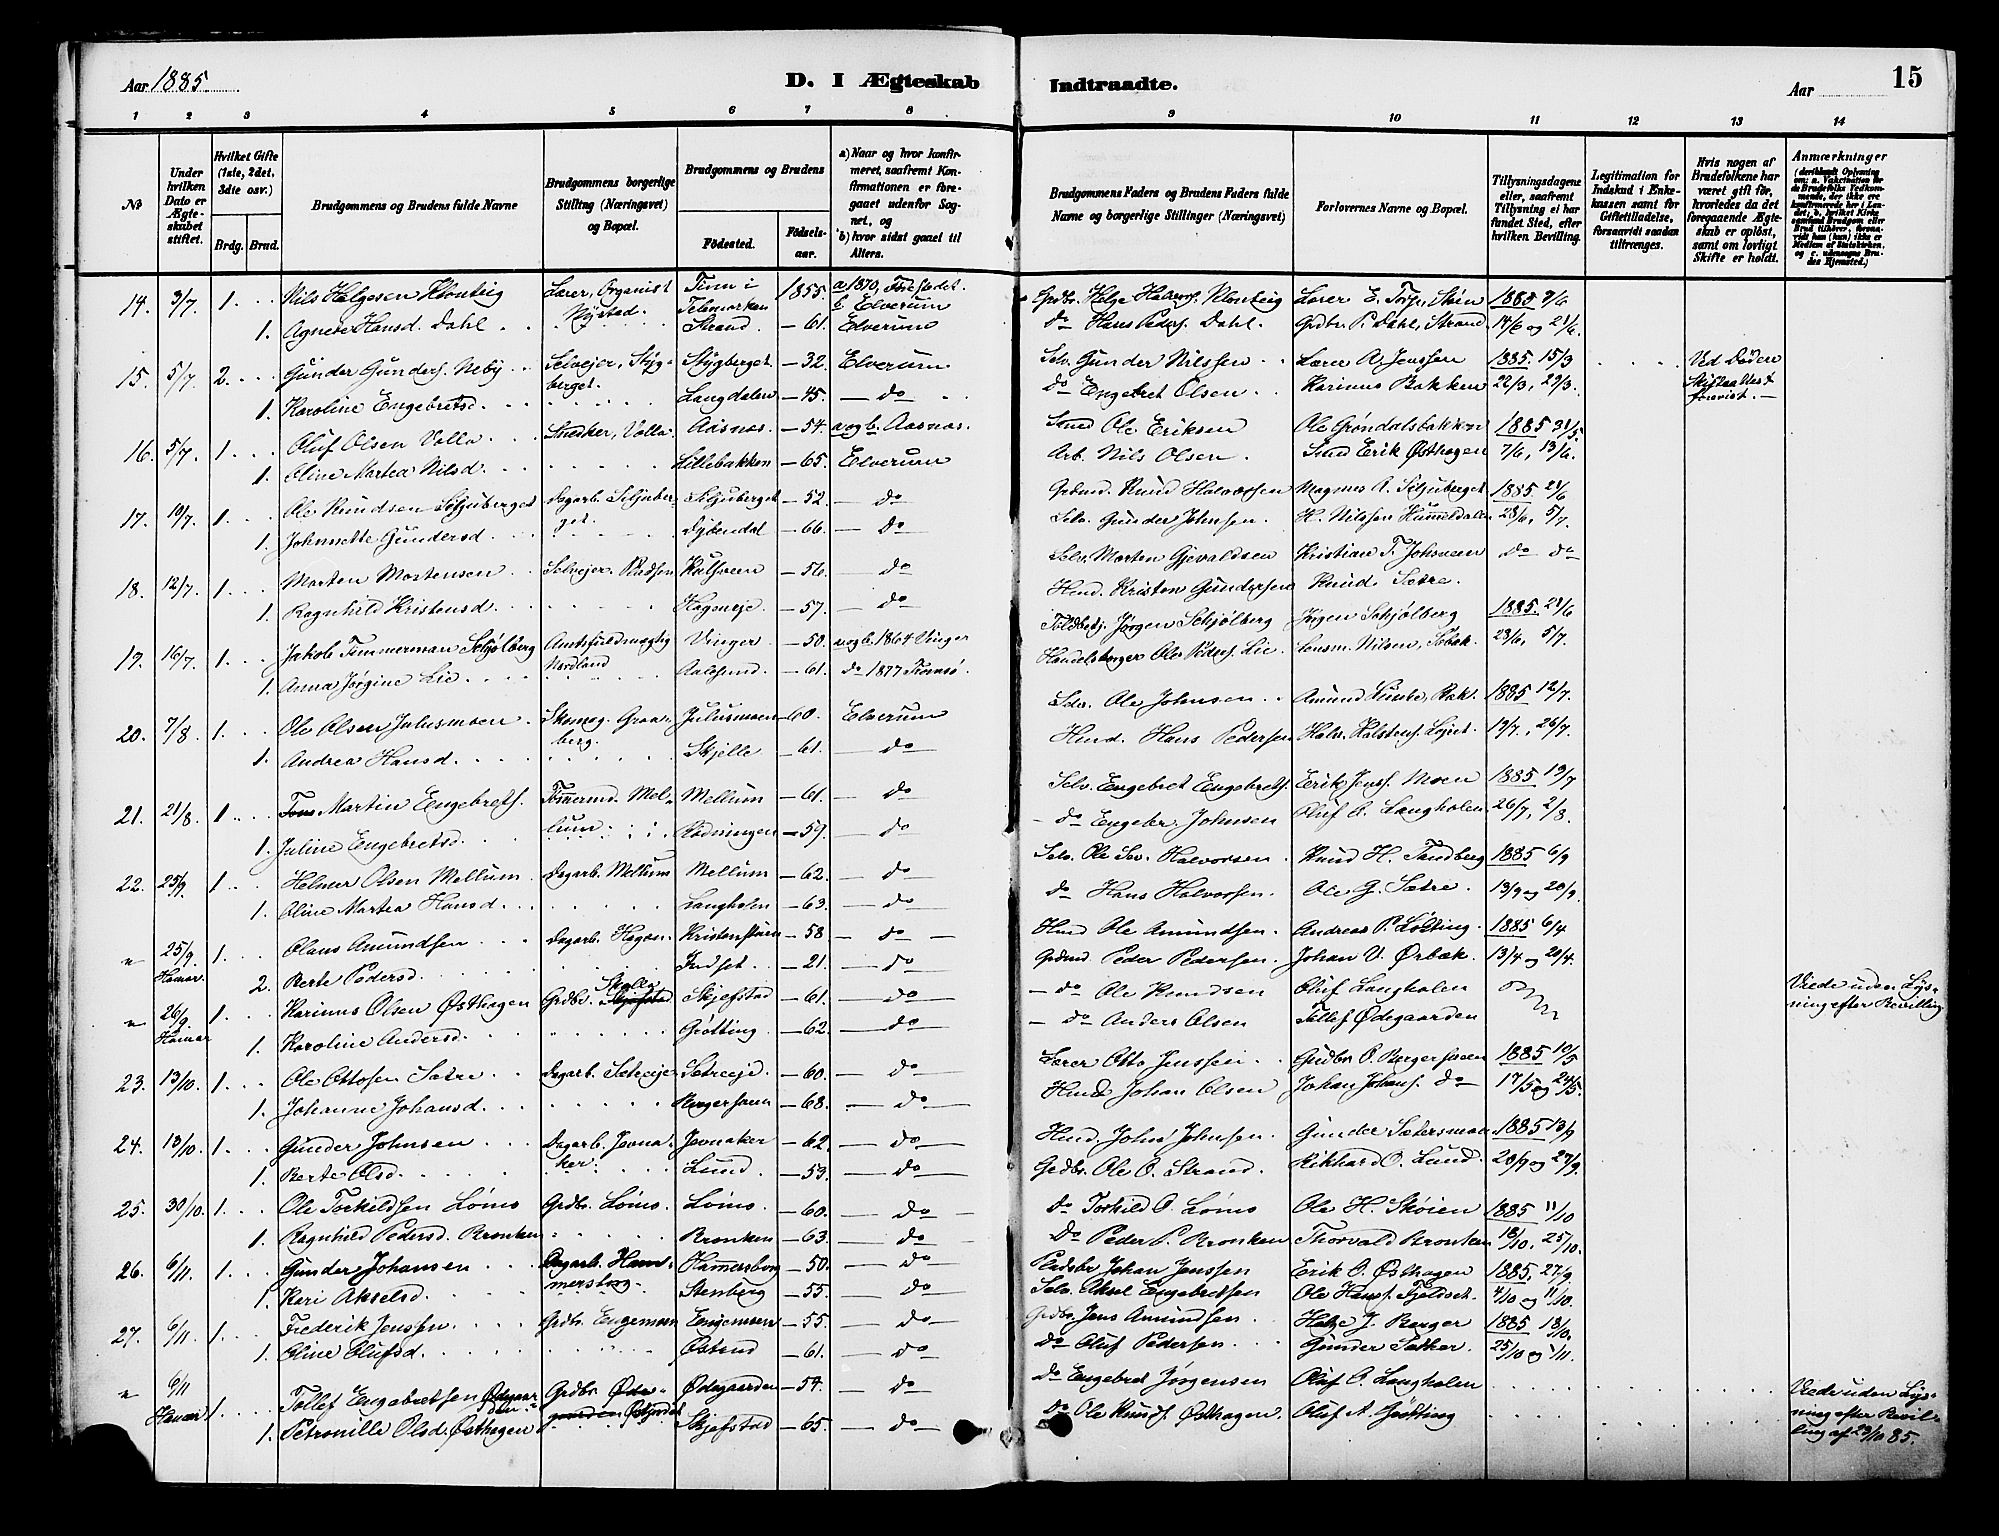 Aar 1885.
D. I Ægteskab
Indtraadte.
Aar
15
1 2 3 4 5 6 7 8 9 10 11 12 13 14
No
Under hvilken Dato er Ægteskabet stiftet.
Hvilket Gifte (1ste, 2det, 3die osv.)
Brdg. Brud.
Brudgommens og Brudens fulde Navne
Brudgommens borgerlige Stilling (Næringsvei) og Bopæl.
Brudgommens og Brudens
Fødested.
Fødselsaar.
a) Naar og hvor konfirmeret, saafremt Konfirmationen er foregaaet udenfor Sognet, og
b) hvor sidst gaaet til Alters.
Brudgommens Faders og Brudens Faders fulde Navne og borgerlige Stillinger (Næringsvei)
Forlovernes Navne og Bopæl.
Tillysningsdagene eller, saafremt Tillysning ei har fundet Sted, efter hvilken Bevilling.
Legitimation for Indskud i Enkekassen samt for Giftetilladelse, forsaavidt saadan tiltrænges.
Hvis nogen af Brudefolkene har været gift før, hvorledes da det foregaaende Ægteskab er opløst, samt om lovligt Skifte er holdt.
Anmærkninger
14. 3/7 1. Nils Helgesen Klonteig Lærer, Organist Tinn i 1855. a 1870, Fødestedet. Grdbr. Helge Halvors. Klonteig Lærer E. Torp, 1885 7/6
1. Agnete Hansd. Dahl Nystad. Telemarken Strand — 61. b. Elverum Elverum do Hans Peders. Dahl. Grdbr. P. Dahl, Strand 14/6 og 21/6.
15. 5/7 2. Gunder Gunders. Neby Selveier, Styg- Stygberget — 32. Elverum Selv. Gunder Nilssen Lærer A. Jenssen 1885. 15/3 Ved Døden
1. Karoline Engebretsd. berget. Langdalen — 45. — do do Engebret Olsen Karinus Bakken 22/3, 29/3. Skifteattest forevist. —
16. 5/7 1. Oluf Olsen Valla Snedker, Valla. Aasnæs — 54. a og b. Aasnæs. Smed Ole Eriksen Ole Grøndalsbakken 1885 31/5.
1. Oline Martea Nilsd Lillebakken — 65. Elverum Arb. Nils Olsen Smed Erik Østhagen 7/6, 13/6.
17. 19/7. 1. Ole Knudsen Seljuberget Dagarb. Seljuber- Seljuberget — 52. — do Grdmd. Knud Halvorsen Magnus A. Seljuberget 1885. 21/6
1. Johnette Gundersd get. Dybendal — 66. — do Selv. Gunder Johnsen. H. Nilssen Hummeldalen 28/6, 5/7.
18. 12/7. 1. Morten Mortensen Selveier. Kalfmoen — 56. — do Selv. Morten Gjevaldsen Kristian T. Johsveen do do
1. Ragnhild Kristensd. Hageneje. — 57. — do Husmd. Kristen Gundersen Knud Sætre.
19. 16/7. 1. Jakob Timmerman Schjølberg Amtsfuldmægtig Vinger — 50. a og b. 1864 Vinger Toldbetj. Jørgen Schjølberg Jørgen Schjølberg 1885. 28/6
1. Anna Jørgine Lie Nordland Aalesund. — 61. do 1877 Tromsø. Handelsborger Ole Peders. Lie Lensm. Nilsen, Sæbæk. 28/6, 5/7.
20. 7/8. 1. Ole Olsen Julusmoen. Skomag. Graa- Julusmoen — 60. Elverum Selv. Ole Johnsen Amund 1885 12/7.
1. Andrea Hansd. berg. Skjelle — 61. — do Husmd. Hans Pedersen Halv. Halstens. Løjet. 19/7, 26/7.
21. 21/8. 1. Martin Engebrets. Tømmermd. Mel- Mellum — 61. — do Selv. Engebret Engebrets. Erik Jens. Moen 1885 19/7
1. Juline Engebretsd. lum. Rødningen — 59. — do — do Engebr. Johnsen Oluf O. Langholen 26/7, 2/8.
22. 25/9. 1. Helmer Olsen Mellum Dagarb. Mellum Mellum — 62. — do Selv. Ole Sev. Halvorsen Knud H. Tandberg 1885 6/9
1. Oline Martea Hansd Langholen — 63. — do do Hans Halvorsen. Ole G. Sætre. 13/9 og 20/9.
" 25/9. Hamar 1. Olaus Amundsen Dagarb. Hagen. — 58 — do — Husmd. Ole Amundsen. Andreas P. Løbting. 1885 6/4
2. Berte Pedersd. Indset. — 21. — do Grdmd. Peder Pedersen. Johan V. Ørbæk. 13/4 og 20/4.
" 26/9 Hamar 1. Karinus Olsen Østhagen Grdbr. Skjefstad — 61. — do — do Ole Knudsen Oluf Langholen Viede uden Lys-
1. Karoline Andersd. Gøtting — 62. — do — do Anders Olsen Tollef Ødegaarden ning efter Bevilling.
23. 13/10. 1. Ole Ottosen Sætre Dagarb. Sætreeje. Sætreeje. — 60. — do Lærer Otto Jenssen Grdbr. O. Bergersæen 1885 10/5
1. Johanne Johansd. Bergersæen — 68. — do Husmd Johan Olsen Johan Johans. do 17/5 og 24/5.
24. 13/10. 1. Gunder Johnsen Dagarb. Jevna- Jevnaker — 62. — do Husmd. John Johnsen. Gunder Sætersmoen. 1885 13/9
1. Berte Olsd. ker. Lund — 59. — do Grdbr. Ole O. Strand. Rikhard O. Lund 20/9 og 27/9.
25. 30/10. 1. Ole Torkildsen Lømo Grdbr. Lømo. Lømo. — 60. — do do Torkild O. Lømo Ole H. Skøien 1885 11/10
1. Ragnhild Pedersd. Bronken Bronken — 63. — do Do Peder P. Bronken Thorvald Bronken 18/10. 25/10.
26. 6/11. 1. Gunder Johansen Dagarb. Ham- Hamersborg — 50. — do Pladsbr. Johan Jenssen Erik O. Østhagen 1885. 27/9.
1. Kari Akselsd. mersborg. Stenberg — 55. — do Selv. Aksel Engebretsen Ole Hans. Tjoldset. 4/10 og 11/10.
27. 6/11. 1. Frederik Jenssen Grdbr. Engemoen Engemoen — 55. — do Grdbr. Jens Amundsen Helge J. Berger 1885 18/10.
1. Oline Olufsd. Østend — 61. — do do Oluf Pedersen Gunder Sætker. 25/10 og 1/11.
" 6/11 Hamar 1. Tollef Engebretsen Ødegaarden Grdbr. Øde- Ødegaarden — 54. — do do Engebret Jørgensen Oluf O. Langholen Viede uden Lys-
1. Petronille Olsd. Østhagen Skjefstad — 65. — do do Ole Knuds. Østhagen. Oluf A. Gøtting ning efter Bevil-
ling af 29/10 85.